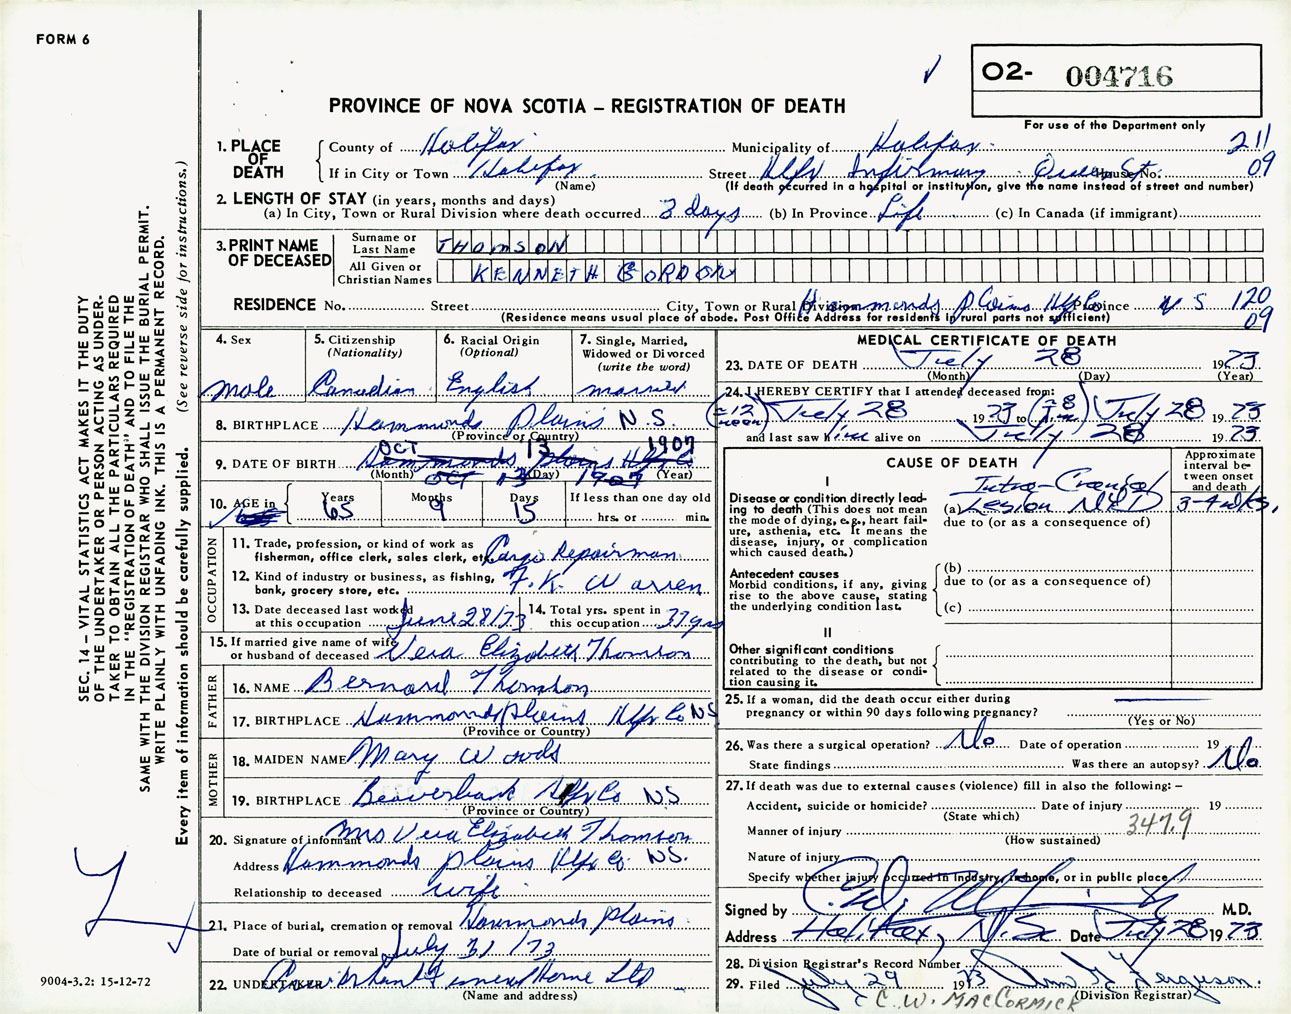 FORM 6
O2- 004716
PROVINCE OF NOVA SCOTIA – REGISTRATION OF DEATH
For use of the Department only
1. PLACE OF DEATH
County of Halifax Municipality of Halifax 211
If in City or Town Halifax Street Hlfx Infirmary Queen St. House No. 09
(Name) (If death occurred in a hospital or institution, give the name instead of street and number)
2. LENGTH OF STAY (in years, months and days)
(a) In City, Town or Rural Division where death occurred 3 days (b) In Province Life (c) In Canada (if immigrant)
3. PRINT NAME OF DECEASED
Surname or Last Name THOMSON
All Given or Christian Names KENNETH GORDON
RESIDENCE No. Street City, Town or Rural Division Hammonds Plains Hlfx Co Province N S 120
(Residence means usual place of abode. Post Office Address for residents in rural parts not sufficient) 09
4. Sex
male
5. Citizenship (Nationality)
Canadian
6. Racial Origin (Optional)
English
7. Single, Married, Widowed or Divorced (write the word)
married
8. BIRTHPLACE Hammonds Plains N.S.
(Province or Country)
OCT 13 1907
9. DATE OF BIRTH Hammonds Plains Hlfx Co
(Month) OCT 13 (Day) 1907 (Year)
10. AGE in Years 65 Months 9 Days 15 If less than one day old hrs. or min.
OCCUPATION
11. Trade, profession, or kind of work as fisherman, office clerk, sales clerk, etc. Cargo Repairman
12. Kind of industry or business, as fishing, bank, grocery store, etc. F. K. Warren
13. Date deceased last worked at this occupation June 28/73
14. Total yrs. spent in this occupation 37 yrs
15. If married give name of wife or husband of deceased Vera Elizabeth Thomson
FATHER
16. NAME Bernard Thomson
17. BIRTHPLACE Hammonds Plains Hlfx Co NS
(Province or Country)
MOTHER
18. MAIDEN NAME Mary Woods
19. BIRTHPLACE Beaverbank Hlfx Co NS
(Province or Country)
20. Signature of informant Mrs Vera Elizabeth Thomson
Address Hammonds Plains Hlfx Co. NS.
Relationship to deceased wife
21. Place of burial, cremation or removal Hammonds Plains
Date of burial or removal July 31/73
22. UNDERTAKER Funeral Home Ltd
(Name and address)
MEDICAL CERTIFICATE OF DEATH
23. DATE OF DEATH July 28 1973
(Month) (Day) (Year)
24. I HEREBY CERTIFY that I attended deceased from:
(≈12 noon) July 28 1973 to July 28 1973
and last saw him alive on July 28 1973
CAUSE OF DEATH
Approximate interval between onset and death
I
Disease or condition directly leading to death (This does not mean the mode of dying, e.g., heart failure, asthenia, etc. It means the disease, injury, or complication which caused death.)
Intra-Cranial
(a) Lesion NYD 3-4 wks.
due to (or as a consequence of)
Antecedent causes
Morbid conditions, if any, giving rise to the above cause, stating the underlying condition last.
(b)
due to (or as a consequence of)
(c)
II
Other significant conditions
contributing to the death, but not related to the disease or condition causing it.
25. If a woman, did the death occur either during pregnancy or within 90 days following pregnancy?
(Yes or No)
26. Was there a surgical operation? No Date of operation 19
State findings Was there an autopsy? No
27. If death was due to external causes (violence) fill in also the following: –
Accident, suicide or homicide? Date of injury 19
(State which)
Manner of injury 347.9
(How sustained)
Nature of injury
Specify whether injury occurred in Industry, in home, or in public place
Signed by M.D.
Address Halifax, N.S. Date July 28 1973
28. Division Registrar's Record Number
29. Filed July 29 1973 Ferguson.
(Division Registrar)
C. W. MACCORMICK
SEC. 14 – VITAL STATISTICS ACT MAKES IT THE DUTY
OF THE UNDERTAKER OR PERSON ACTING AS UNDER-
TAKER TO OBTAIN ALL THE PARTICULARS REQUIRED
IN THE "REGISTRATION OF DEATH" AND TO FILE THE
SAME WITH THE DIVISION REGISTRAR WHO SHALL ISSUE THE BURIAL PERMIT.
WRITE PLAINLY WITH UNFADING INK. THIS IS A PERMANENT RECORD.
Every item of information should be carefully supplied. (See reverse side for instructions.)
9004-3.2: 15-12-72